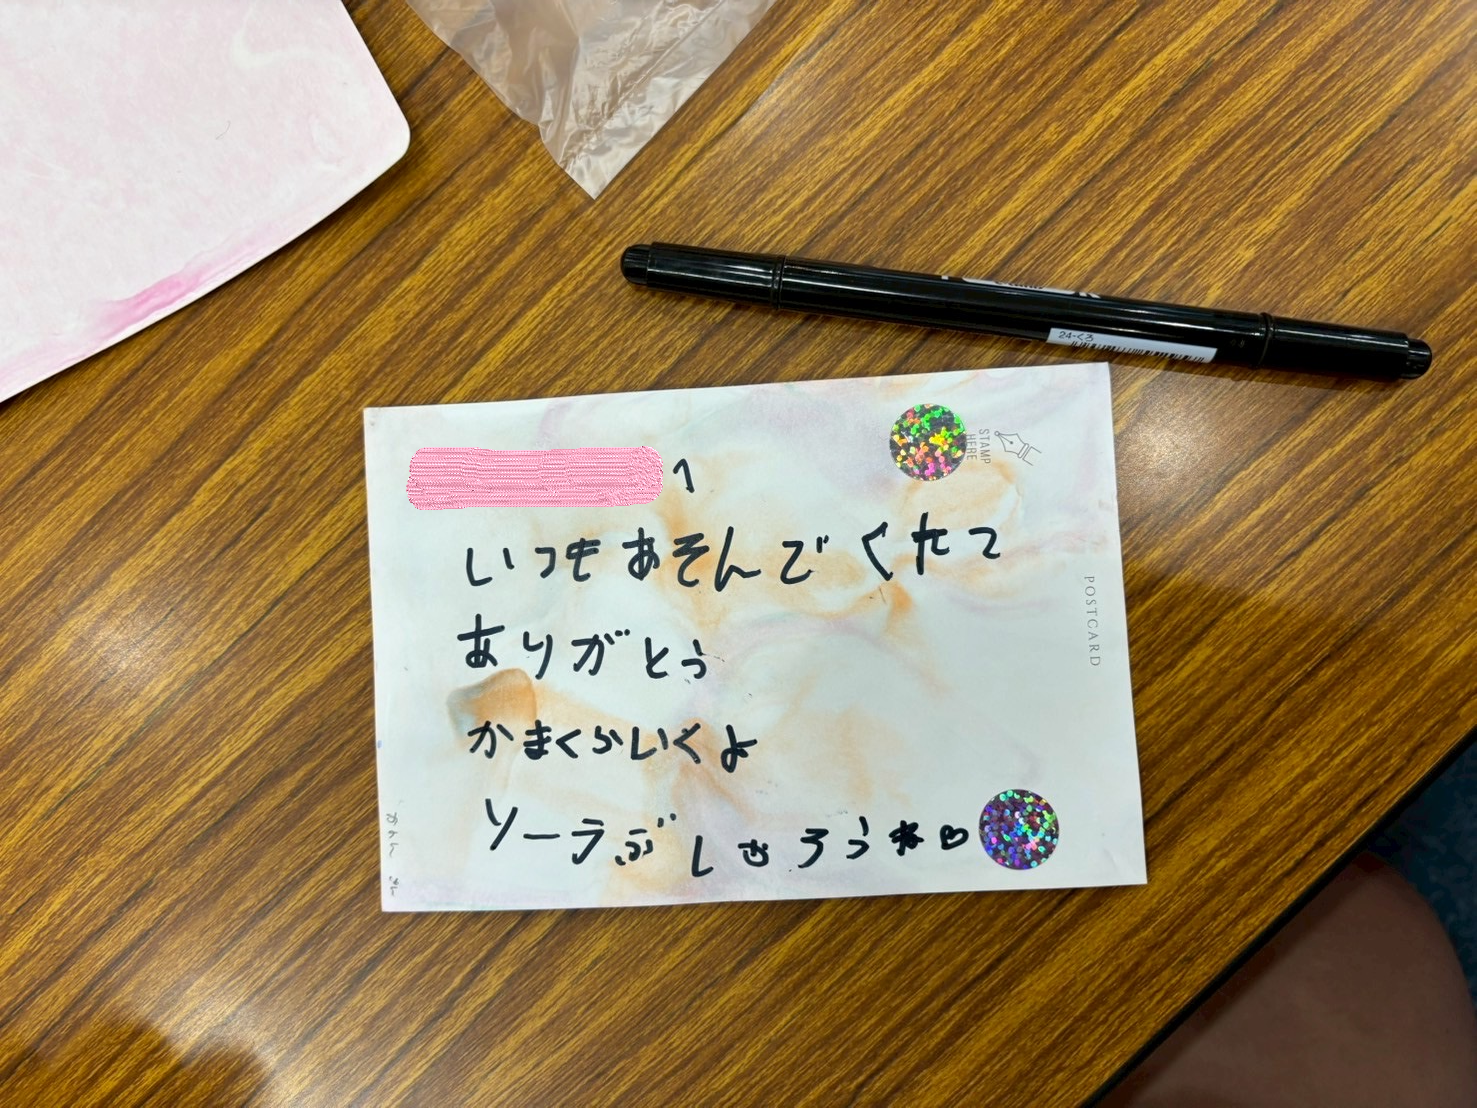 へ
いつもあそんでくたて
ありがとう
かまくらいくよ
ソーラぶしおろうね♡
STAMP
HERE
POSTCARD
24-くろ